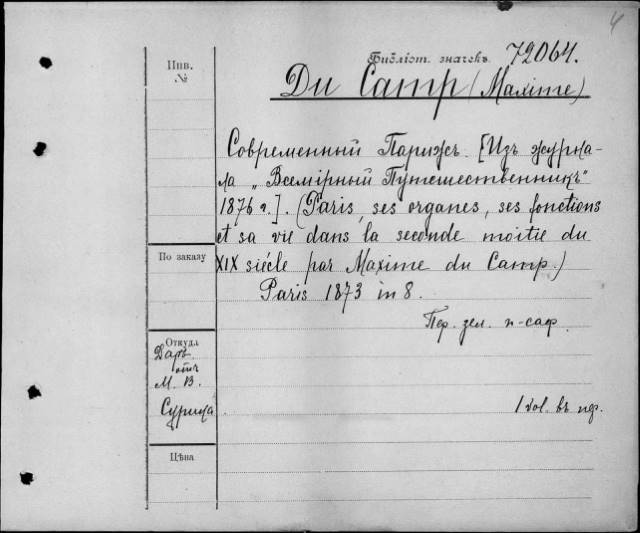 4
Инв.
№
Библіот. значекъ 72064.
Du Camp (Maxime)
Современный Парижъ. [Изъ журна-
ла „Всемірный Путешественникъ"
1876 г.]. (Paris, ses organes, ses fonctiens
et sa vie dans la seconde moitie du
По заказу
XIX siécle par Maxime du Camp.)
Paris 1873 in 8.
Пер. зел. п-саф.
Откуда
Даръ
отъ
М. В.
Сурина.
1 vol. въ пер.
Цѣна